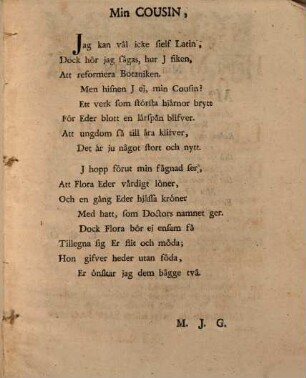 Min COUSIN,
Jag kan väl icke sielf Latin,
Dock hör jag sägas, hur J fiken,
Att reformera Botaniken.
Men hisnen J ej, min Cousin?
Ett verk som störsla hjärnor bryts
För Eder blott en lärspån blifver.
Att ungdom så till ära klifver,
Det är ju något stort och nytt.
J hopp förut min fägnad ser,
Att Flora Eder värdigt löner,
Och en gång Eder hjässa kröner
Med hatt, som Doctors namnet ger.
Dock Flora bör ej ensam få
Tillegna sig Er flit och möda;
Hon gifver heder utan föda,
Er önskar jag dem bägge två.
M. J. G.